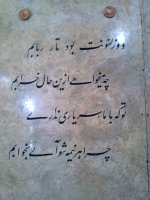 دو زلفونت بود تار ربابم
چه میخواهی ازین حال خرابم
تو که با ما سر یاری نداری
چرا هر نیمه شو آیی بخوابم